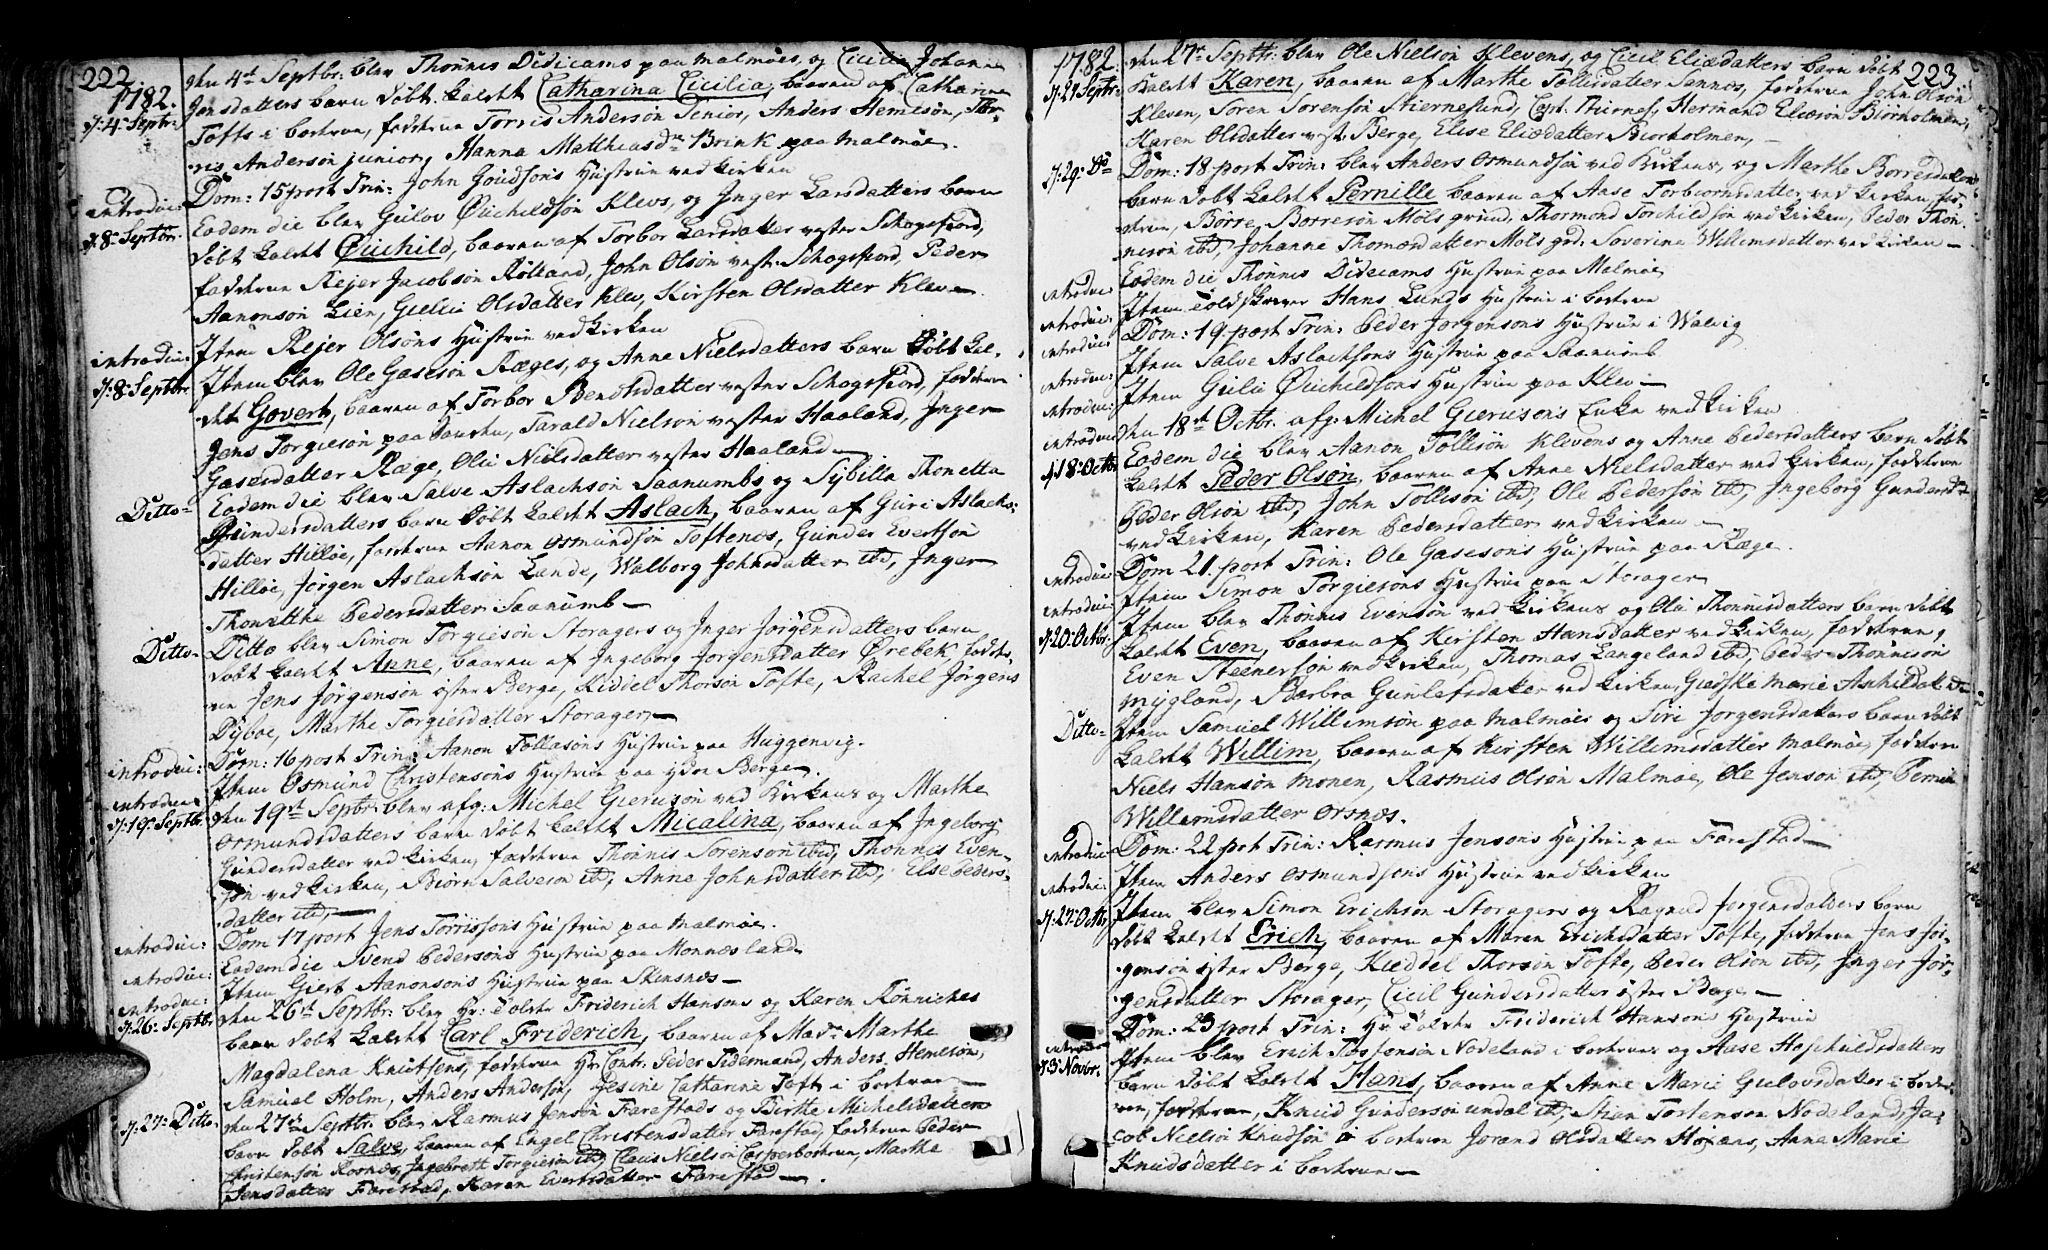 222.
1782.
d: 4. Septr:
den 4de Septbr: blev Thönnis Didicams paa Malmöes, og Cicilia Johanne
Jensdatters barn döbt kaldet Catharina Cicilia, baaren af Catharina
Tofts i borhven, fadderne Torris Andersön Senior, Anders Hemesön, Tör-
ris Andersön junior, Hanna Matthiasd: Brink paa Malmöe.
introduc: Dom: 15 post Trin: John Goudsöns Hustrue ved kirken
d. 8de Septbr: Eodem die blev Gulov Öuchildsön Klevs, og Inger Larsdatters barn
döbt kaldet Öuchild, baaren af Torbor Larsdatter vester Schogsfiord,
fadderne Rejer Jacobsön Rölland, John Olsön vest: Schogsfiord, Peder
Aanonsön Lien, Giulia Olsdatter Klev, Kirsten Olsdatter Klev.
introduc: Item Rejer Olsöns Hustrue ved kirken
d: 8de Septbr. Item blev Ole Gasesön Ræges, og Anne Nielsdatters barn döbt kal-
det Govert, baaren af Torbor Bendtsdatter vester Schogsfiord, fadderne
Jens Torgiesön paa Sanden, Tarald Nielsön vester Haaland, Inger
Gasesdatter Ræge, Olu Nielsdatter vester Haaland
Ditto Eodem die blev Salve Aslachsön Saanumbs og Sybilla Thonetta
Gundersdatters barn döbt kaldet Aslach, baaren af Guri Aslachs-
datter Hilloe, fadderne Aanon Osmundsön Toftenes, Gunder Evertsön
Hilloe, Jörgen Aslachsön Lande, Walborg Johnsdatter ibd, Inger
Thonethe Pedersdatter Saanumb
Ditto Ditto blev Simon Torgiesön Storagers og Inger Jörgensdatters barn
döbt kaldet Anne, baaren af Ingeborg Jorgensdatter Örebek, fadde-
rne Jens Jörgensön öster Berge, Kiddel Thorsön Tofte, Rachel Jörgens
Dyboe, Marthe Torgiesdatter Storager
introduc: Dom: 16 post Trin: Aanon Tollasöns Hustrue paa Huggenvig.
introduc: Item Osmund Christensöns Hustrue paa ydre Berge.
d: 19de Septbr den 19de Septbr: blev afg: Michel Gierusön ved Kirkens og Marthe
Osmundsdatters barn döbt kaldet Micalina, baaren af Ingeborg
Gundersdatter ved kirken, fadderne Thönnis Sörensön ibd, Thönnis Even-
sön ved kirken, Biörn Salvesön ibd, Anna Johnsdatter ibd, Else Peders-
datter ibd,
introduc: Dom 17 post Jens Torrissöns Hustrue paa Malmöe.
introduc: Eodem die Svend Pedersöns Hustrue paa Monnesland
introduc: Item Giert Aanonsöns Hustrue paa Skinsnes
d: 26: Septbr den 26de Septbr: blev Hr: Tolder Friderich Hansens og Karen Rönniches
barn döbt kaldet Carl Friderich, baaren af Mad: Marthe
Magdalena Knutsens, fadderne Hr: Contr: Peder Tidemand, Anders Hemesön,
Samuel Holm, Anders Andersön, Jesine Catharine Toft i borhven
d: 27: Ditto den 27de Septbr: blev Rasmus Jensön Farestads og Birthe Michelsdatters
barn döbt Salve, baaren af Engel Christensdatter Farestad, fadderne Peder
Christensön Roones, Ingebrett Torgiesön ibd, Claus Nielsön Casperborhven, Marthe
Jensdatter Farestad, Karen Evertsdatter Farestad.
223
1782.
d: 27 Septr: den 27de Septbr: blev Ole Nielsön Klevens, og Cicil Eliædatters barn döbt
kaldet Karen, baaren af Marthe Tollisdatter Sannes, fadderne John Olsön
Kleven, Soren Sorensön Stiernesund, Capt: Thirnes, Hermand Eliæsön Biörholmen,
Karen Olsdatter vest: Berge, Elise Eliædatter Biorholmen,
d. 29: Do Dom: 18 post Trin: blev Anders Osmundsön ved Kirkens, og Marthe Börresdatters
barn döbt kaldet Pernille baaren af Aase Torbiörnsdatter ved kirken, fad-
derne, Börre Borresön Mols grund, Thormond Torchildsön ved kirken, Peder Thön-
nisön ibd, Johanne Thomæsdatter Mols grd. Soverina Willumsdatter ved kirken
introduc: Eodem die Thönnis Didicams Hustrue paa Malmöe
introduc: Item Toldskriver Hans Lunds Hustrue i borhven
introduc: Dom: 19 post Trin: Peder Jorgensöns Hustrue i Walvig
introduc: Item Salve Aslachsöns Hustrue paa Saanumb
introduc: Item Guliu Öuchildsöns Hustrue paa Klev
introduc: den 18de Octbr. afg: Michel Gierusöns Enke ved kirken
d. 18: Octbr Eodem die blev Aanon Tollisön Klevens og Anne Pedersdatters barn döbt
kaldet Peder Olsön, baaren af Anne Nielsdatter ved kirken, fadderne
Peder Olsön ibd, John Tollisön ibd, Ole Pedersön ibd, Ingeborg Gundersd:
ved kirken, Karen Pedersdatter ved kirken
introduc: Dom 21 post Trin: Ole Gasesöns Hustrue paa Ræge.
introduc: Item Simon Torgiesöns Hustrue paa Storager
d. 20: Octbr: Item blev Thönnis Evensön ved kirkens og Olu Thonnisdatters barn döbt
kaldet Even, baaren af Kirsten Hansdatter ved kirken, fadderne,
Even Steenersön ved kirken, Thomas Langeland ibd, Peder Thönnisön
Mygland, Barbra Gunlefsdatter ved kirken, Giedske Marie Ashildsd: ibd
Ditto Item Samuel Willumsön paa Malmöes og Siri Jorgensdatters barn döbt
kaldet Willim, baaren af Kirsten Willumsdatter Malmöe, fadderne
Niels Hansön Monen, Rasmus Olsön Malmöe, Ole Jensön ibd, Pernill
Willumsdatter Orsnes.
introduc: Dom: 22 post Trin: Rasmus Jensöns Hustrue paa Farestad
introduc: Item Anders Osmundsöns Hustrue ved kirken
d. 27: Octbr Item blev Simon Erichsön Storagers og Ragnild Jorgensdatters barn
döbt kaldet Erich, baaren af Maren Erichsdatter Tofte, fadderne Jens Jör-
gensön öster Berge, Kieddel Thorsön Tofte, Peder Olsön ibd, Inger Jör-
gensdatter Storager, Cicil Gundersdatter öster Berge
introduc: Dom: 23 post Trin: Hr: Tolder Friderich Hansens Hustrue
d. 3: Novbr. Item blev Erich Tostensön Nodeland i borhven og Aase Hoschuldsdatters
barn döbt kaldet Hans, baaren af Anne Marie Gulovsdatter i borh-
ven, fadderne, Knud Gundersön Undal ibd, Stian Tostensön Nodeland, Ja-
cob Nielsön Knudsön i borhven Jorand Olsdatter Höxaas, Anne Marie
Knudsdatter i borhven